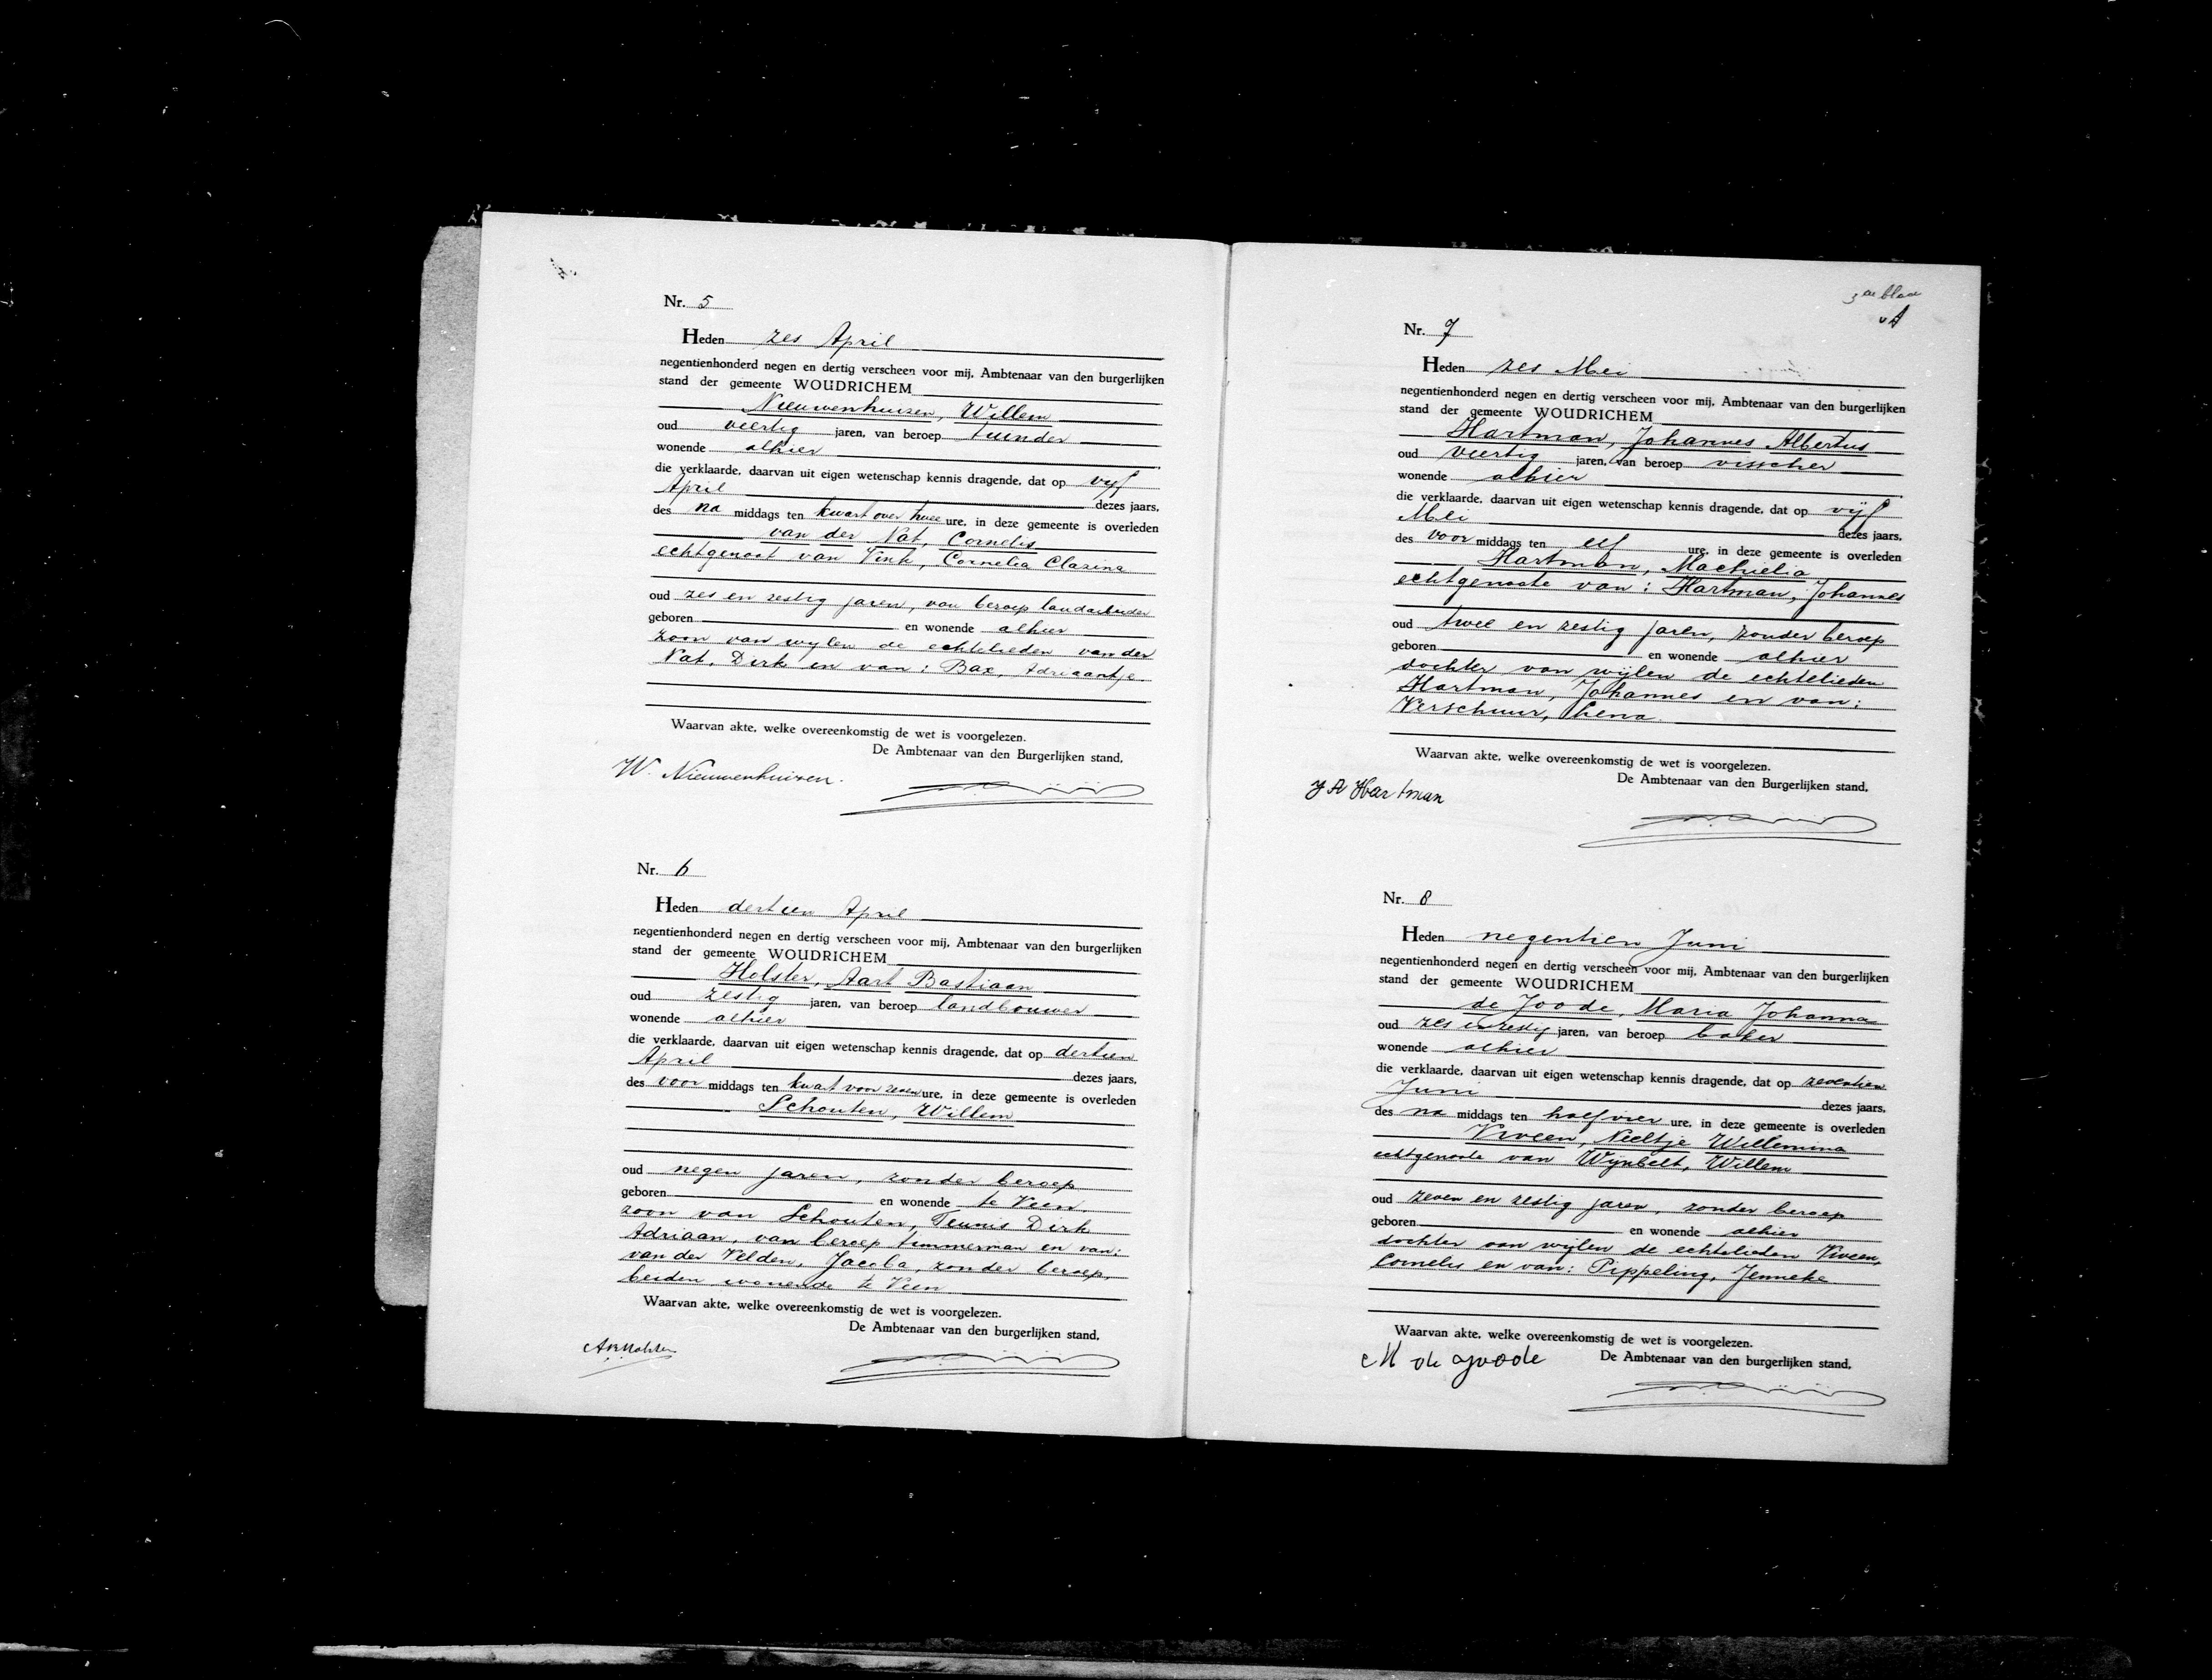 Nr. 5
Heden zes April
negentienhonderd negen en dertig verscheen voor mij, Ambtenaar van den burgerlijken
stand der gemeente WOUDRICHEM
Nieuwenhuizen, Willem
oud veertig jaren, van beroep tuinder
wonende alhier
die verklaarde, daarvan uit eigen wetenschap kennis dragende, dat op vijf
April dezes jaars,
des na middags ten kwart over twee ure, in deze gemeente is overleden
van der Nat, Cornelis
echtgenoot van Vink, Cornelia Clasina
oud zes en zestig jaren, van beroep landarbeider
geboren en wonende alhier
zoon van wylen de echtelieden van der
Nat, Dirk en van: Bax, Adriaantje
Waarvan akte, welke overeenkomstig de wet is voorgelezen.
De Ambtenaar van den Burgerlijken stand,
W. Nieuwenhuizen.
Nr. 6
Heden dertien April
negentienhonderd negen en dertig verscheen voor mij, Ambtenaar van den burgerlijken
stand der gemeente WOUDRICHEM
Holster, Aart Bastiaan
oud zestig jaren, van beroep landbouwer
wonende alhier
die verklaarde, daarvan uit eigen wetenschap kennis dragende, dat op dertien
April dezes jaars,
des voor middags ten kwart voor zeven ure, in deze gemeente is overleden
Schouten, Willem
oud negen jaren, zonder beroep
geboren en wonende te Veen,
zoon van Schouten, Teunis Dirk
Adriaan, van beroep timmerman en van:
van der Velden, Jacoba, zonder beroep,
beiden wonende te Veen
Waarvan akte, welke overeenkomstig de wet is voorgelezen.
De Ambtenaar van den burgerlijken stand,
3de blad
Nr. 7
Heden zes Mei
negentienhonderd negen en dertig verscheen voor mij, Ambtenaar van den burgerlijken
stand der gemeente WOUDRICHEM
Hartman, Johannes Albertus
oud veertig jaren, van beroep visscher
wonende alhier
die verklaarde, daarvan uit eigen wetenschap kennis dragende, dat op vijf
Mei dezes jaars,
des voor middags ten elf ure, in deze gemeente is overleden
Hartman, Machielia
echtgenoote van: Hartman, Johannes
oud twee en zestig jaren, zonder beroep
geboren en wonende alhier
dochter van wijlen de echtelieden
Hartman, Johannes en van:
Verschuur, Lena
Waarvan akte, welke overeenkomstig de wet is voorgelezen.
De Ambtenaar van den Burgerlijken stand,
J A Hartman
Nr. 8
Heden negentien Juni
negentienhonderd negen en dertig verscheen voor mij, Ambtenaar van den burgerlijken
stand der gemeente WOUDRICHEM
de Joode, Maria Johanna
oud zes en zestig jaren, van beroep baker
wonende alhier
die verklaarde, daarvan uit eigen wetenschap kennis dragende, dat op zeventien
Juni dezes jaars,
des na middags ten half vier ure, in deze gemeente is overleden
Viveen, Neeltje Willemina
echtgenoote van Wijnbelt, Willem
oud zeven en zestig jaren, zonder beroep
geboren en wonende alhier
dochter van wijlen de echtelieden Viveen,
Cornelis en van: Pippeling, Jenneke
Waarvan akte, welke overeenkomstig de wet is voorgelezen.
De Ambtenaar van den burgerlijken stand,
M de Joode